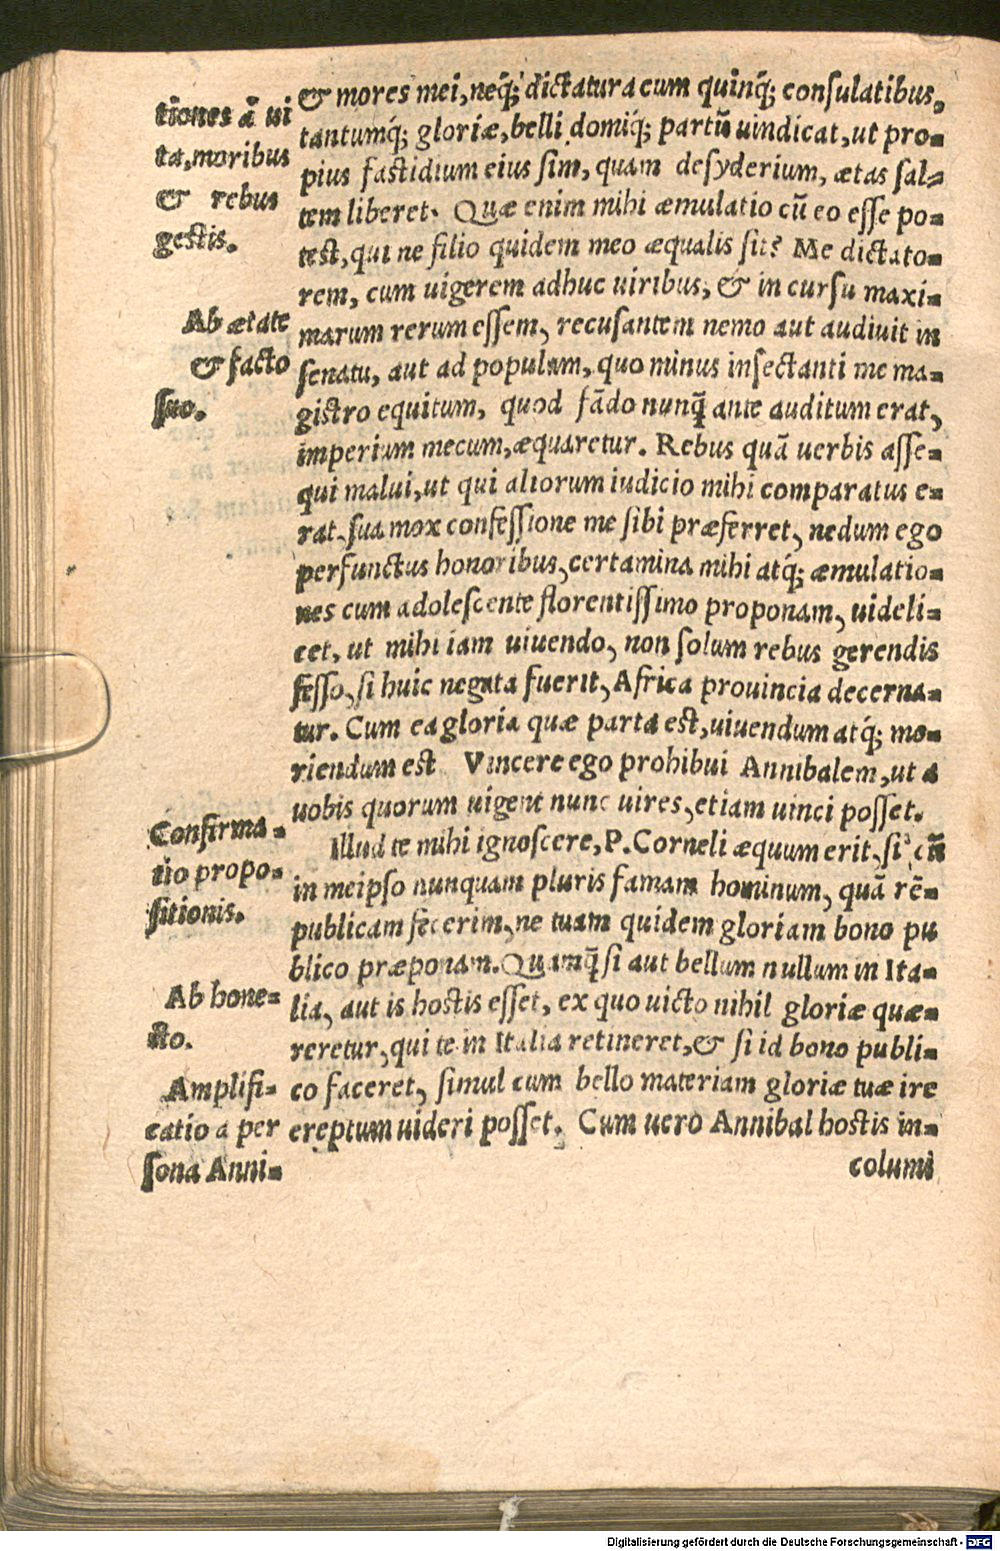 tiones à ui
ta, moribus
& rebus
gestis.
Ab ætate
& facto
suo.
& mores mei, neq́; dictatura cum quinq́; consulatibus,
tantumq́; gloriæ, belli domiq́; partū uindicat, ut pro-
pius fastidium eius sim, quam desyderium, ætas sal-
tem liberet. Quæ enim mihi æmulatio cū eo esse po-
test, qui ne filio quidem meo æqualis sit? Me dictato-
rem, cum uigerem adhuc uiribus, & in cursu maxi-
marum rerum essem, recusantem nemo aut audiuit in
senatu, aut ad populum, quo minus insectanti me ma-
gistro equitum, quod fādo nunq̃ ante auditum erat,
imperium mecum, æquaretur. Rebus quā uerbis asse-
qui malui, ut qui aliorum iudicio mihi comparatus e-
rat, sua mox confessione me sibi præferret, nedum ego
perfunctus honoribus, certamina mihi atq́; æmulatio-
nes cum adolescente florentissimo proponam, uideli-
cet, ut mihi iam uiuendo, non solum rebus gerendis
fesso, si huic negata fuerit, Africa prouincia decerna-
tur. Cum ea gloria quæ parta est, uiuendum atq́; mo-
riendum est Vincere ego prohibui Annibalem, ut a
uobis quorum uigent nunc uires, etiam uinci posset.
Confirma-
tio propo-
sitionis.
Ab hone-
sto.
Amplifi-
catio a per
sona Anni-
Illud te mihi ignoscere, P. Corneli æquum erit, si cū
in meipso nunquam pluris famam hominum, quā rē-
publicam fecerim, ne tuam quidem gloriam bono pu
blico præponam. Quamq̃ si aut bellum nullum in Ita-
lia, aut is hostis esset, ex quo uicto nihil gloriæ quæ-
reretur, qui te in Italia retineret, & si id bono publi-
co faceret, simul cum bello materiam gloriæ tuæ ire
ereptum uideri posset. Cum uero Annibal hostis in-
columi
Digitalisierung gefördert durch die Deutsche Forschungsgemeinschaft - DFG